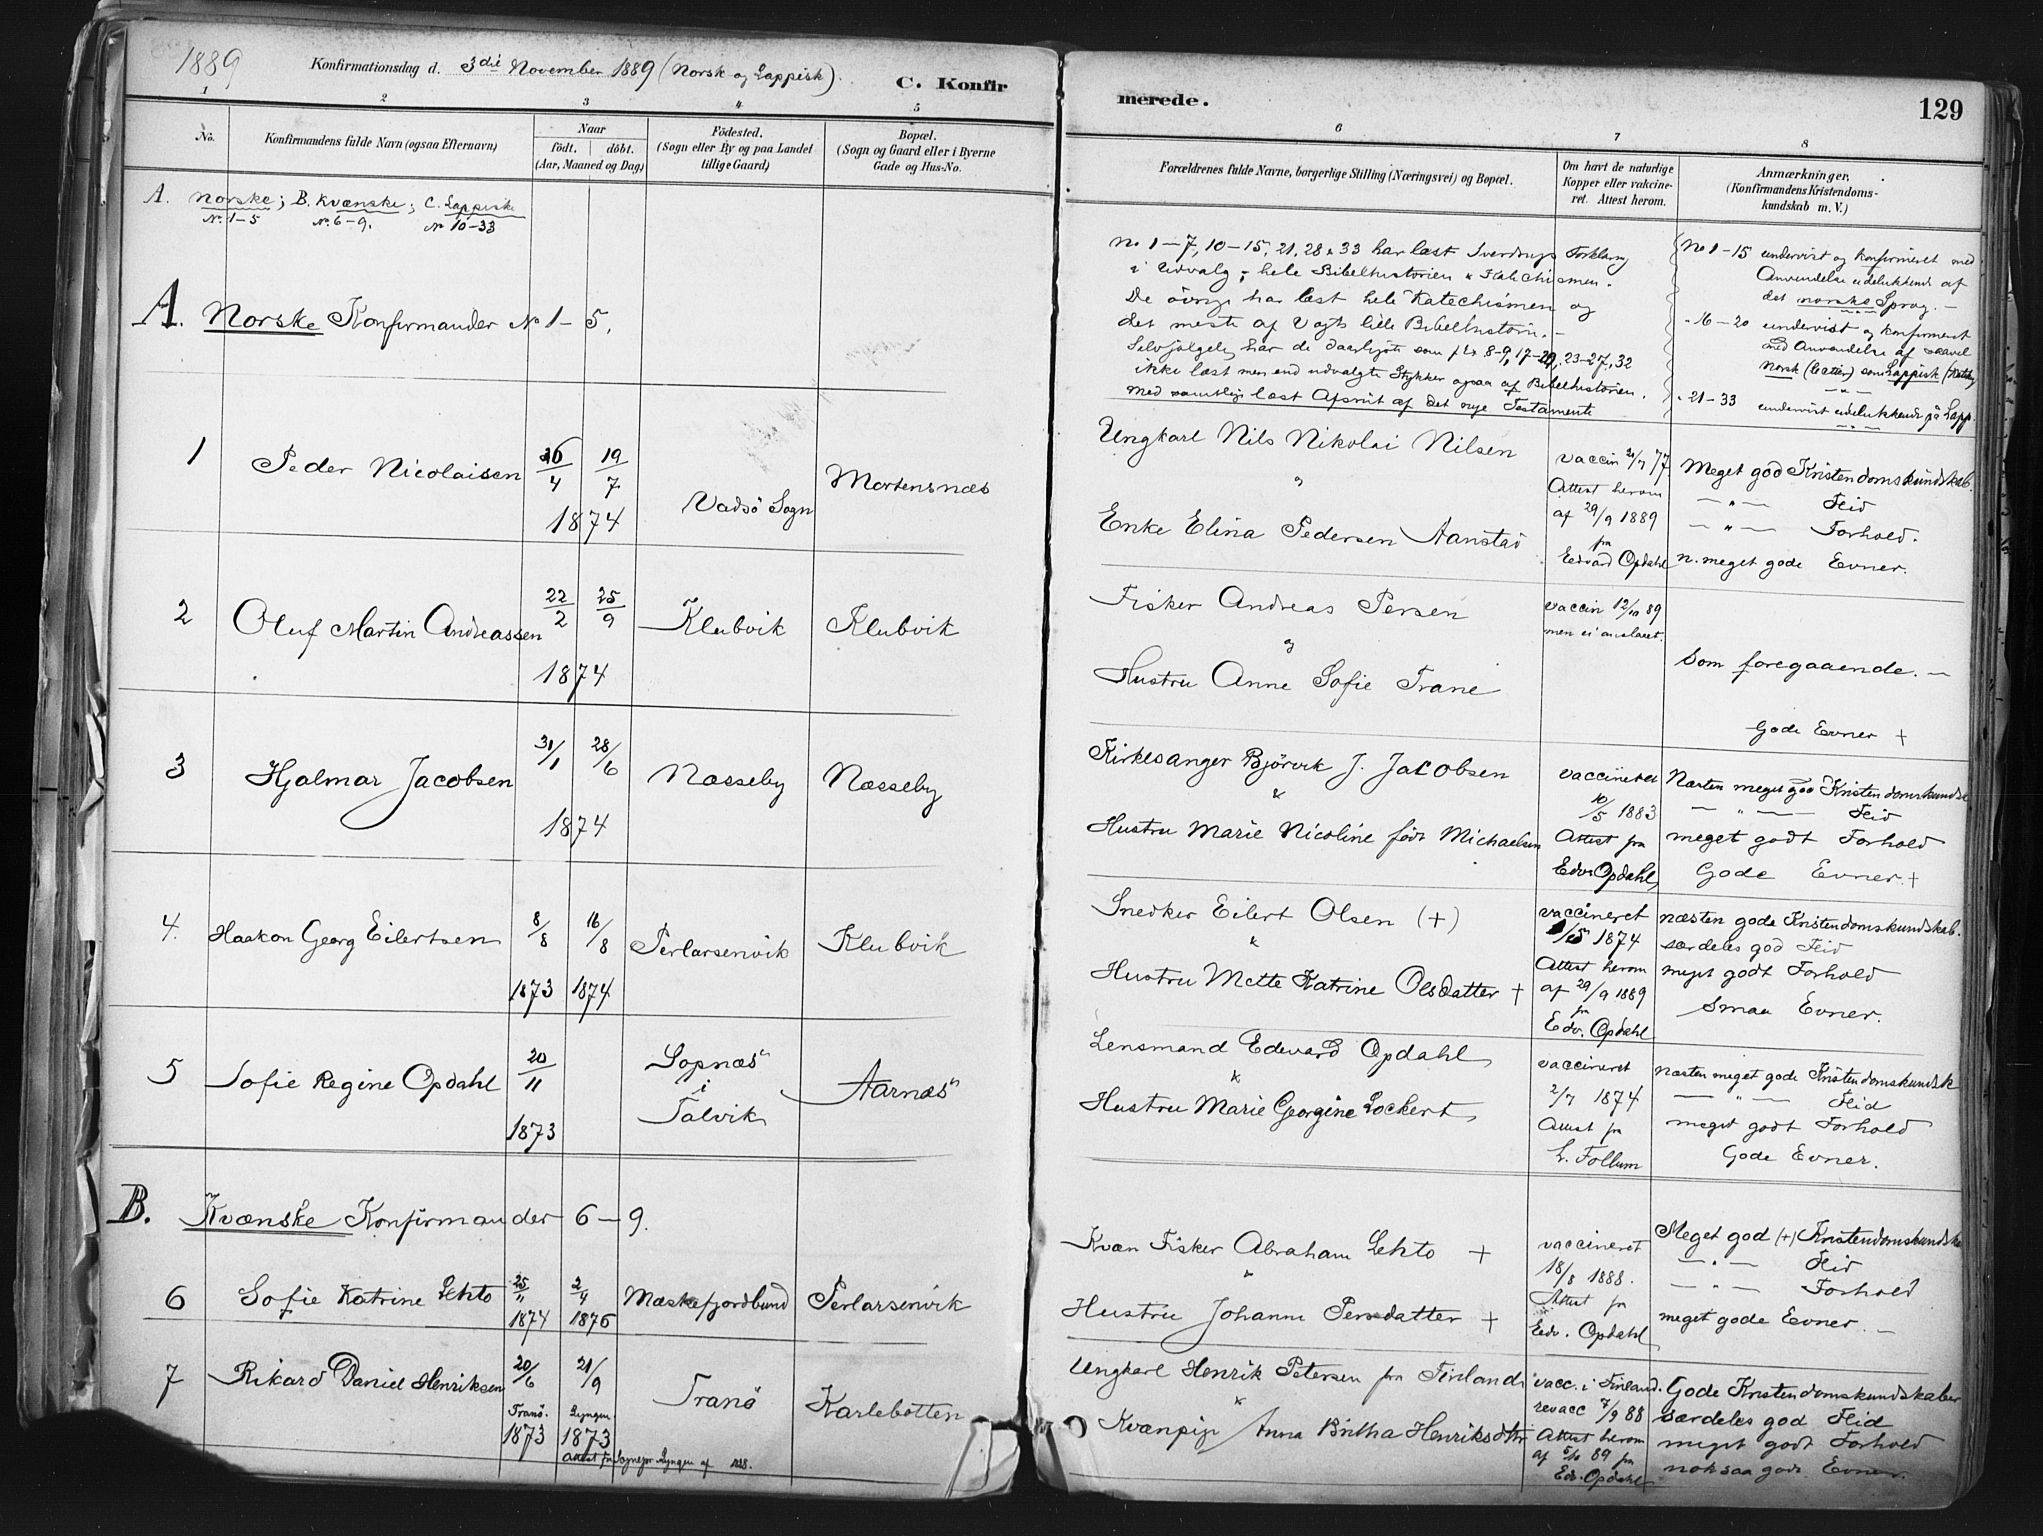 1889
Konfirmationsdag d. 3die November 1889 (Norsk og Lappisk)
C. Konfir
merede.
129
1 2 3 4 5
6 7 8
No.
Konfirmandens fulde Navn (ogsaa Efternavn)
Naar
födt. | döbt.
(Aar, Maaned og Dag)
Födested.
(Sogn eller By og paa Landet
tillige Gaard)
Bopæl.
(Sogn og Gaard eller i Byerne
Gade og Hus-No.
Forældrenes fulde Navne, borgerlige Stilling (Næringsvei) og Bopæl.
Om havt de naturlige
Kopper eller vakcine-
ret. Attest herom.
Anmærkninger,
(Konfirmandens Kristendoms-
kundskab m. V.)
A. Norske; B. Kvænske; C. Lappiske
No. 1-5 No. 6-9. No 10-33
A. Norske Konfirmander No 1-5.
No 1-7, 10-15, 21, 28 & 33 har læst Sverdrups Forklaring
i Udvalg, hele Bibelhistorien & Katechismen.
De övrige har læst hele Katechismen og
det meste af Vogts lille Bibelhistorie.
Selvfølgelig har de daarligste som f. Ex 8-9, 17-20, 23-27, 32
ikke læst mer end udvalgte Stykker ogsaa af Bibelhistorien.
med samtlige læst Afsnit af det nye Testamente
No 1-15 undervist og konfirmeret med
Anvendelse udelukkende af
det norske Sprog.
" 16-20 undervist og konfirmeret
med Anvendelse af saavel
Norsk som Lappisk
" 21-33 undervist udelukkende på Lapp.
1
Peder Nicolaisen
16/4 19/7
1874
Vadsö Sogn
Mortensnæs
Ungkarl Nils Nikolai Nilsen
og
Enke Elina Pedersen Aanstad
vaccin 21/7 77.
Attest herom
af 29/9 1889
fra
Edvard Opdahl
Meget god Kristendomskundskab.
— " — Flid
— " — Forhold.
n. meget gode Evner.
2
Oluf Martin Andreassen
22/2 25/9
1874
Klubvik
Klubvik
Fisker Andreas Persen
og
Hustru Anne Sofie Trane
vaccin 12/10 89
men ei anslaaet.
Som foregaaende. —
Gode Evner +
3
Hjalmar Jacobsen
31/1 28/6
1874
Næsseby
Næsseby
Kirkesanger Björvik J. Jacobsen
&
Hustru Marie Nicoline född Michaelsen
vaccineret
10/5 1883
Attest fra
Edv. Opdahl,
Næsten meget god Kristendomskundsk
— " — Flid
meget godt Forhold
Gode Evner. +
4.
Haakon Georg Eilertsen
8/8 16/8
1873 1874
Perlarsenvik
Klubvik
Snedker Eilert Olsen (+)
&
Hustru Mette Katrine Olsdatter +
vaccineret
1874
Attest herom
af 29/9 1889
fra
Edv. Opdahl
næsten gode Kristendomskundskab.
særdeles god Flid
meget godt Forhold
Smaa Evner.
5
Sofie Regine Opdahl
20/11
1873
Sopnæs
i
Talvik
Aarnæs
Lensmand Edevard Opdahl
&
Hustru Marie Georgine Lockert
vaccineret
2/7 1874
Attest fra
L. Follum
Næsten meget gode Kristendomskundsk
— " — Flid
meget godt Forhold
Gode Evner.
B. Kvænske Konfirmander 6-9.
6
Sofie Katrine Lehto
25/11 2/4
1874 1876
Mæskefjordbund
Perlarsenvik
Kvæn Fisker Abraham Lehto +
&
Hustru Johanne Persdatter +
vaccineret
18/8 1888.
Attest fra
Edv. Opdahl
Meget god (+) Kristendomskundska
— " — Flid
— " — Forhold
meget gode Evner. —
7
Rikard Daniel Henriksen
20/6 21/9
Tranö. Lyngen.
1873 1873
Attest fra Sognepr Lyngen af
Tranö
Karlebotten
Ungkarl Henrik Petersen fra Finland
&
Kvænpige Anna Britha Henriksdtr
vacc. i Finland.
revacc 7/9 88
Attest herom
af 5/10 89 fra
Edv. Opdahl
Gode Kristendomskundskaber
særdeles god Flid
meget godt Forhold
noksaa gode Evner.